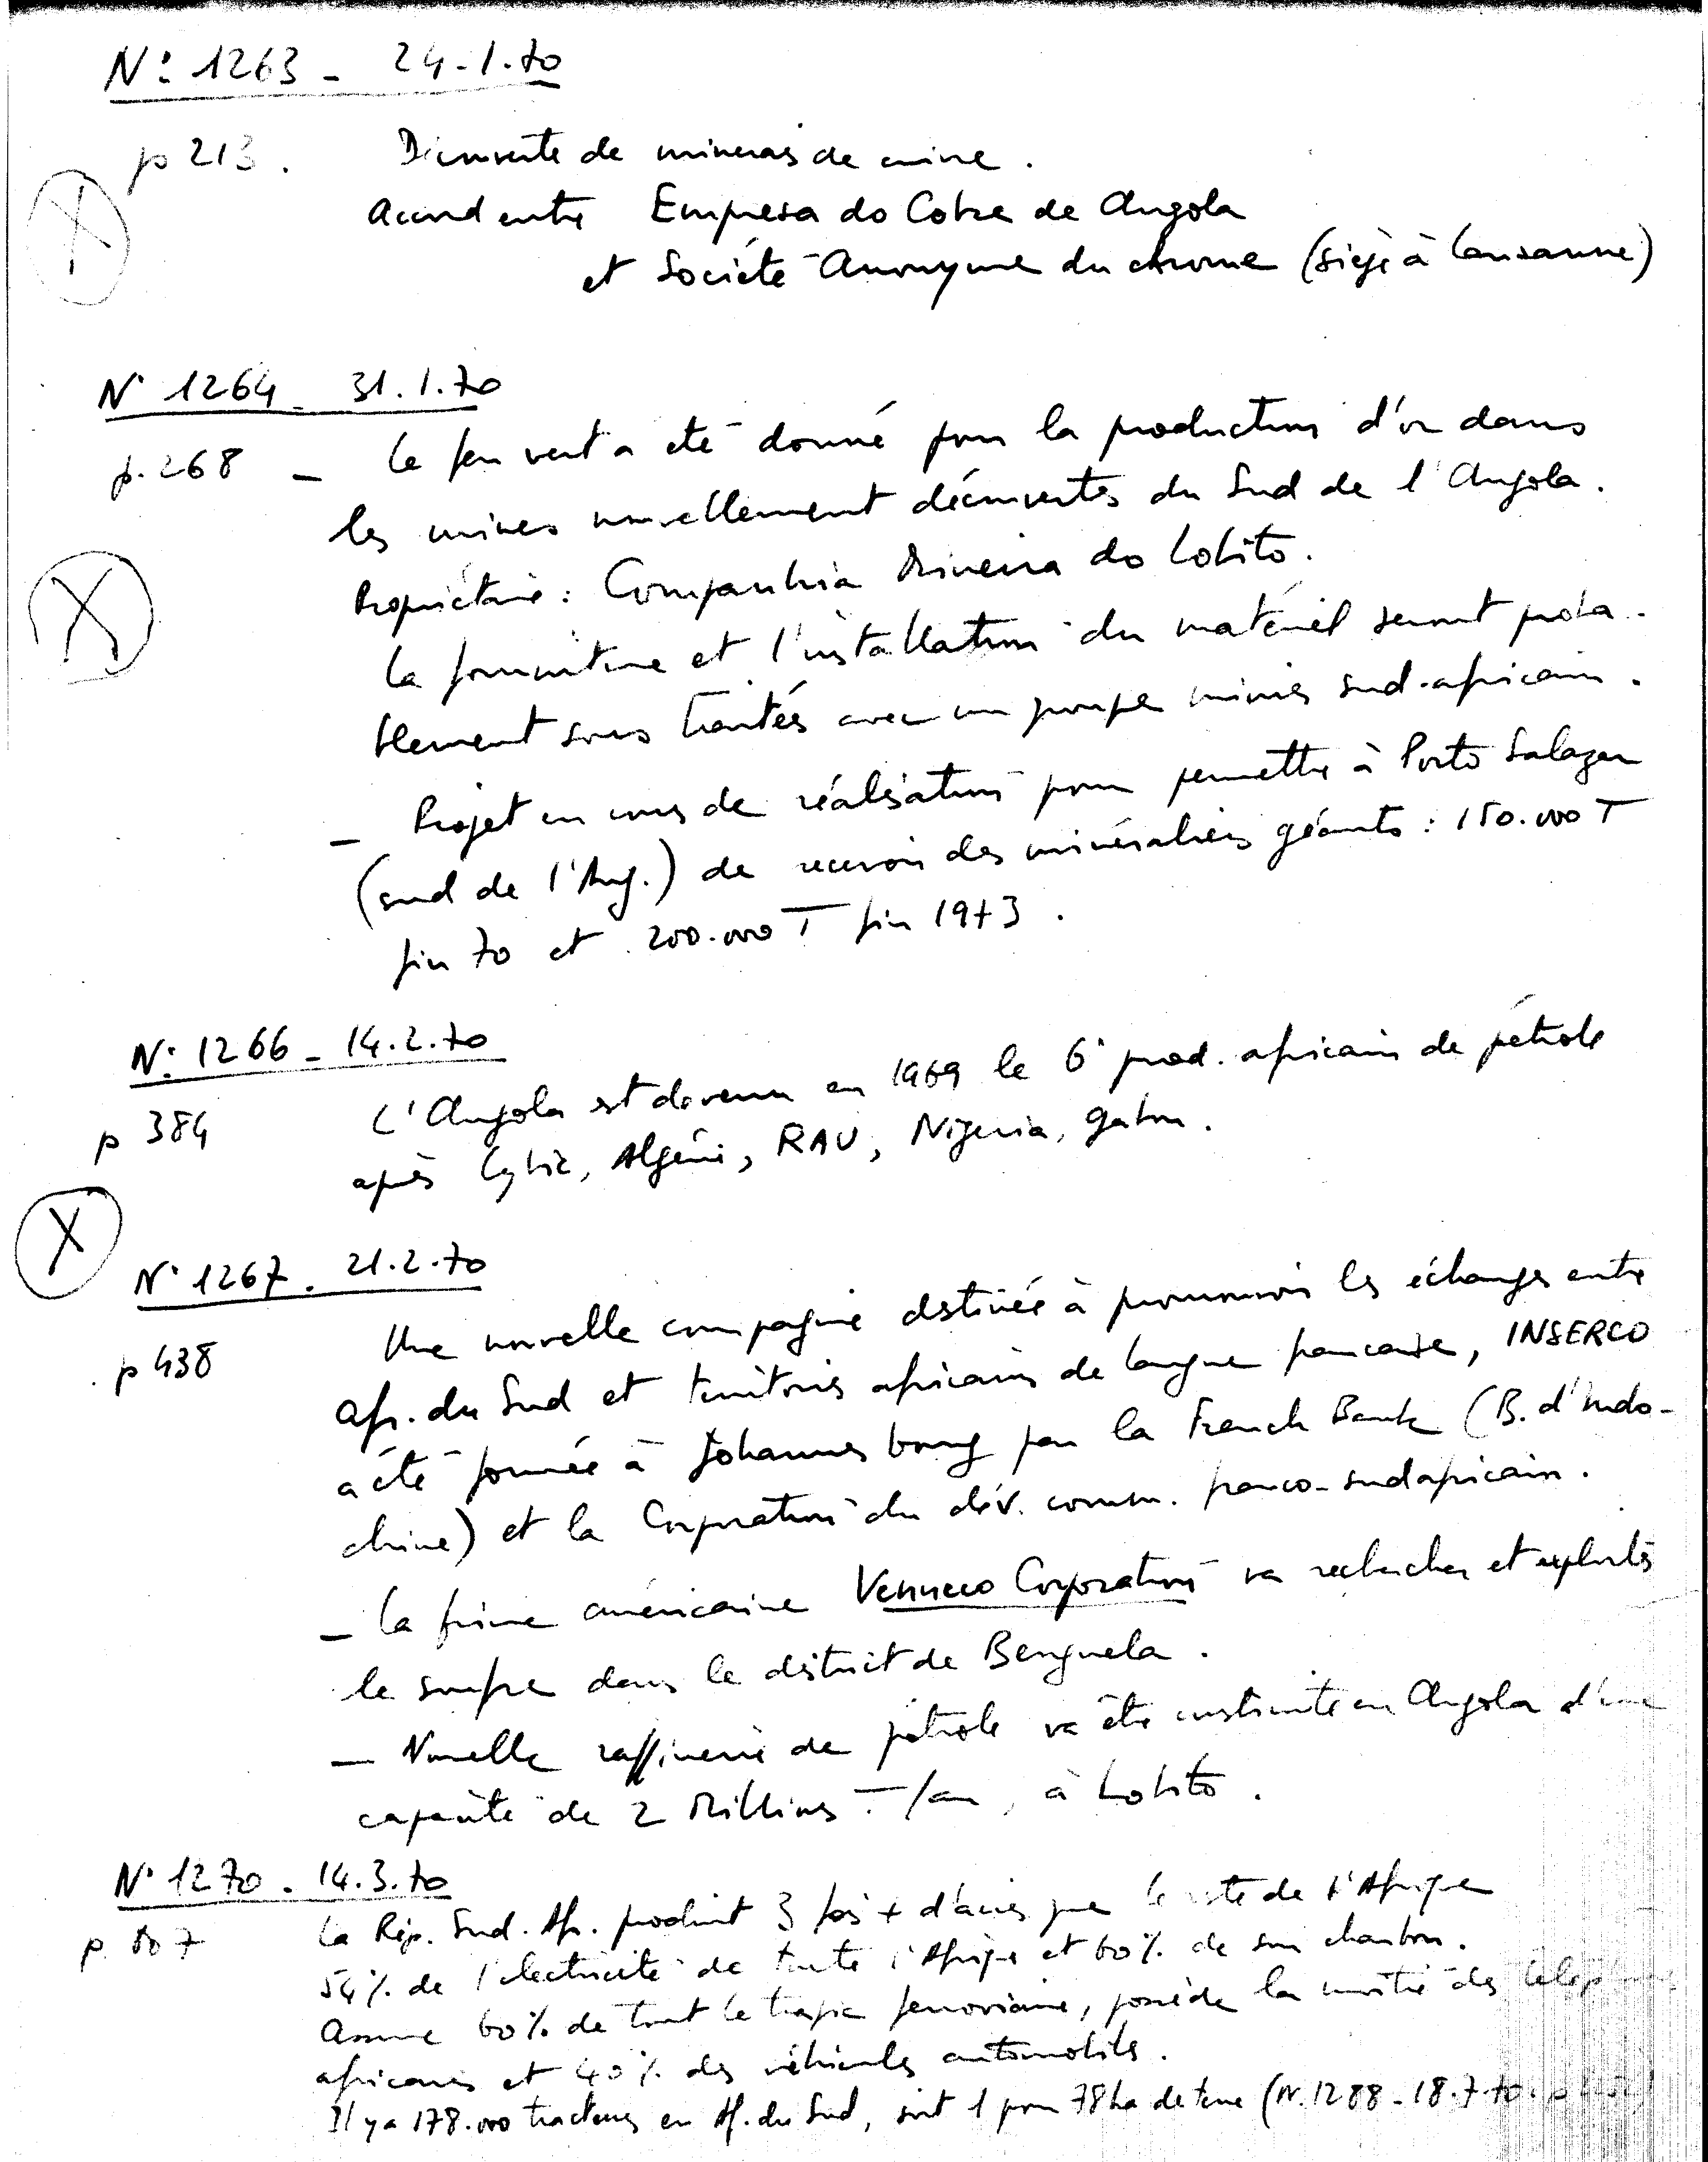 N° 1263 - 24.1.70
p 213. Découverte de minerais de cuivre.
Accord entre Empresa do Cobre de Angola
et Société Anonyme du chrome (siège à Lausanne)
N° 1264 - 31.1.70
p. 268 - Le feu vert a été donné pour la production d'or dans
les mines nouvellement découvertes du Sud de l'Angola.
Propriétaire : Companhia Mineira do Lobito.
La fourniture et l'installation du matériel seront proba-
blement sous traités avec un groupe minier sud-africain.
- Projet en cours de réalisation pour permettre à Porto Salazar
(sud de l'Ang.) de recevoir des minéraliers géants : 150.000 T
fin 70 et 200.000 T fin 1973.
N° 1266 - 14.2.70
p 384 L'Angola est devenu en 1969 le 6° prod. africain de pétrole
après Lybie, Algérie, RAU, Nigeria, Gabon.
N° 1267 - 21.2.70
p 438 Une nouvelle compagnie destinée à promouvoir les échanges entre
Afr. du Sud et territoires africains de langue francaise, INSERCO
a été formée à Johannesbourg par la French Bank (B. d'Indo-
chine) et la Corporation du dév. comm. franco-sudafricain.
- La firme américaine Venneco Corporation va rechercher et exploiter
le soufre dans le district de Benguela.
- Nouvelle raffinerie de pétrole va être construite en Angola d'une
capacité de 2 Millions T/an, à Lobito.
N° 1270 - 14.3.70
p. La Rép. Sud. Afr. produit 3 fois + d'acier que le reste de l'Afrique
54% de l'électricité de toute l'Afrique et 60% de son charbon.
Assure 60% de tout le trafic ferroviaire, possède la moitié des
africains et 40% des véhicules automobiles.
Il y a 178.000 tracteurs en Af. du Sud, soit 1 pour 78 ha de terre (N. 1288 - 18.7.70.